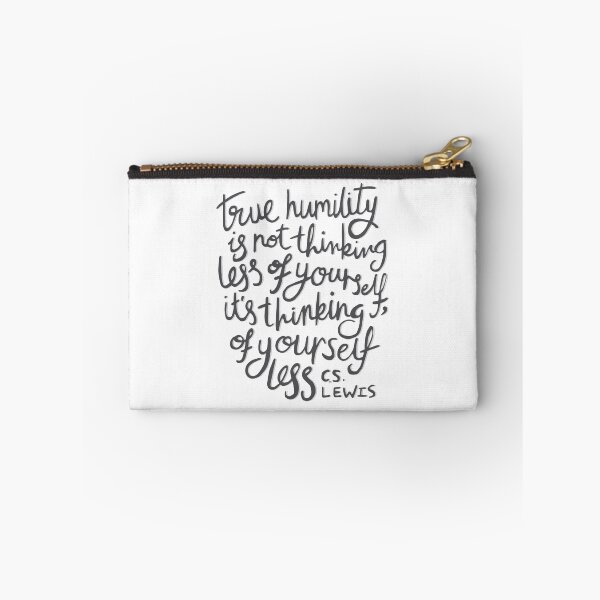 true humility
is not thinking
less of yourself,
it's thinking
of yourself
less C.S.
LEWIS